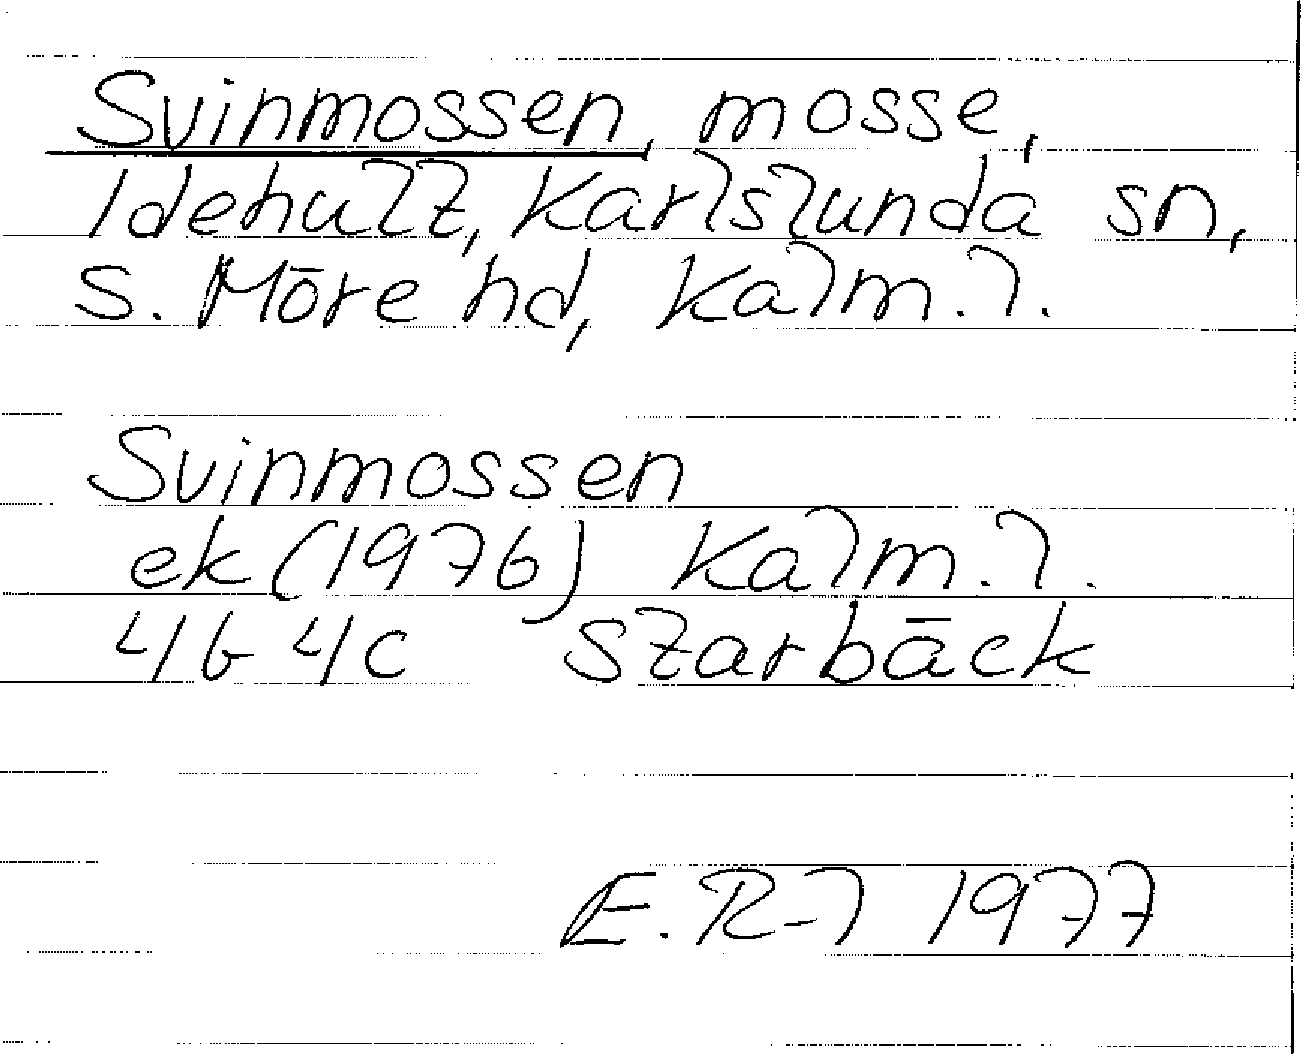 Svinmossen, mosse,
Idehult, Karlslunda sn,
S. Möre hd, Kalm. l.
Svinmossen
ek (1976) Kalm. l.
4G 4c Starbäck
E. R-l 1977